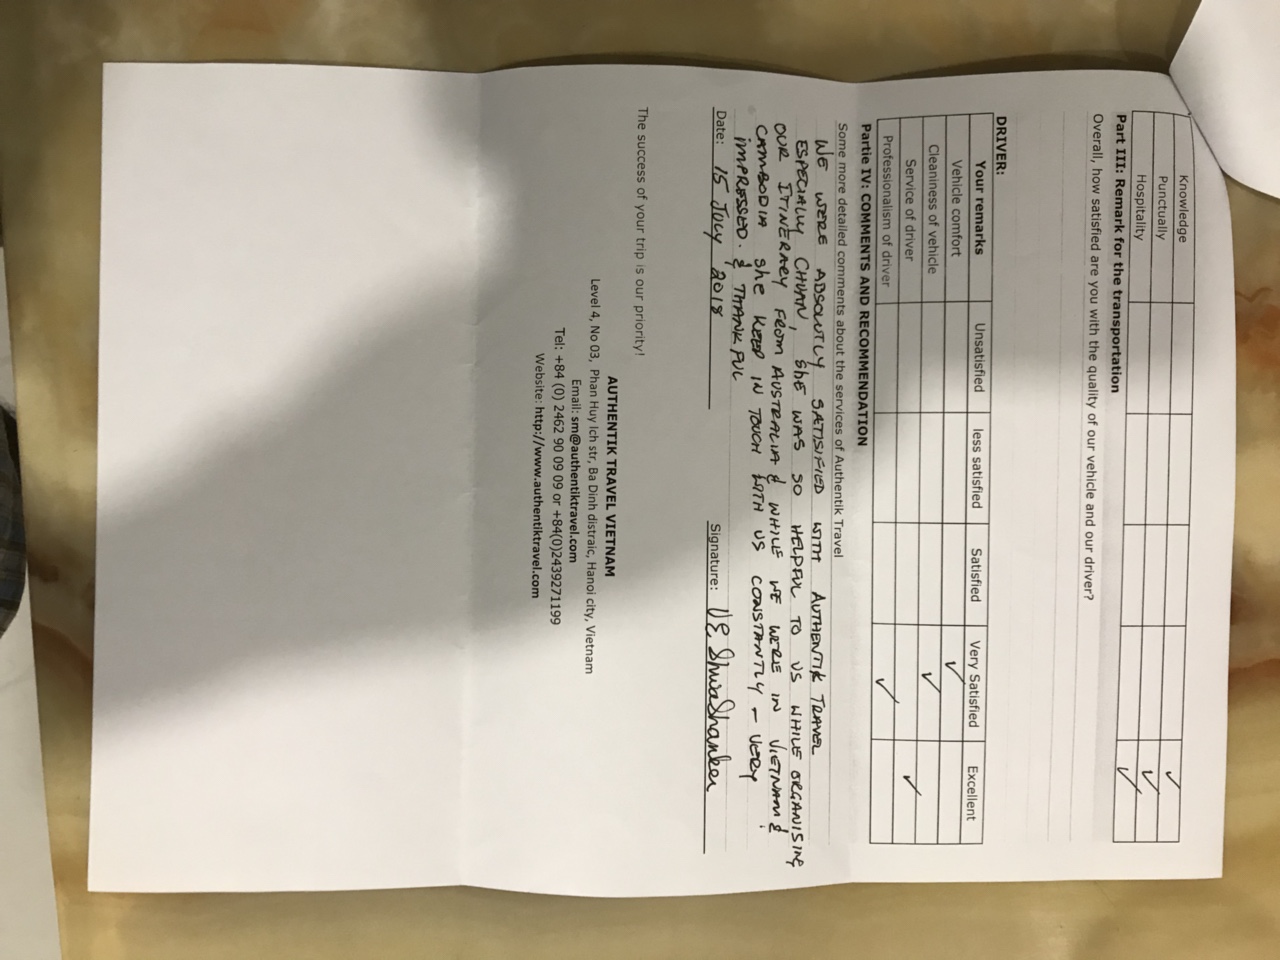 Knowledge ✓
Punctually ✓
Hospitality ✓
Part III: Remark for the transportation
Overall, how satisfied are you with the quality of our vehicle and our driver?
DRIVER:
Your remarks Unsatisfied less satisfied Satisfied Very Satisfied Excellent
Vehicle comfort ✓
Cleaniness of vehicle ✓
Service of driver ✓
Professionalism of driver ✓
Partie IV: COMMENTS AND RECOMMENDATION
Some more detailed comments about the services of Authentik Travel
WE WERE ABSOLUTLY SATISIFIED WITH AUTHENTIK TRAVEL
ESPECIALLY CHUAN, SHE WAS SO HELPFUL TO US WHILE ORGANISING
OUR ITINERARY FROM AUSTRALIA & WHILE WE WERE IN VIETNAM &
CAMBODIA she KEEP IN TOUCH WITH US CONSTANTLY – VERY
IMPRESSED. & THANKFUL
Date: 15 JULY 2018 Signature: 
The success of your trip is our priority!
AUTHENTIK TRAVEL VIETNAM
Level 4, No 03, Phan Huy Ich str, Ba Dinh distraic, Hanoi city, Vietnam
Email: sm@authentiktravel.com
Tel: +84 (0) 2462 90 09 09 or +84(0)2439271199
Website: http://www.authentiktravel.com